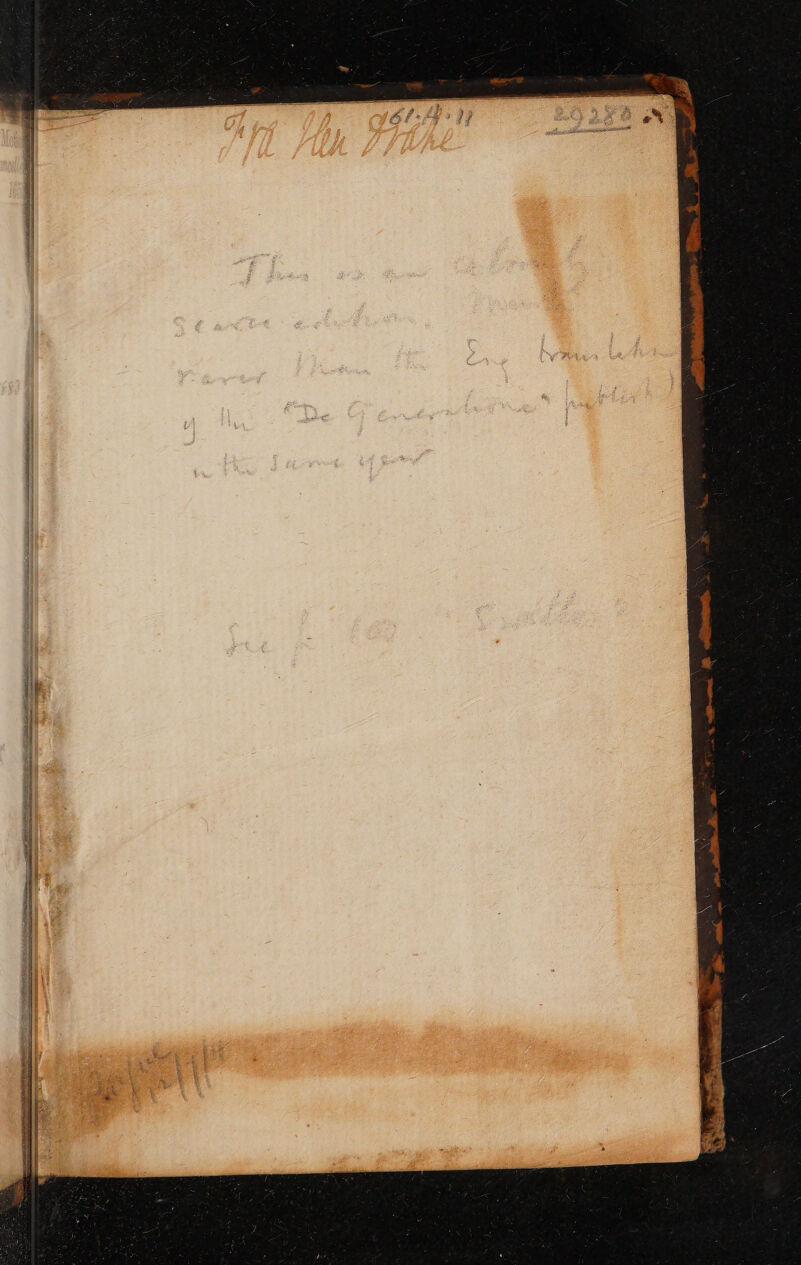 61.A.11
29280
Fra Hen Drake
This is an
scarce edition. Much
rarer than the Eng translation
of the "De Generatione" publish'd
in the same year
See p 160